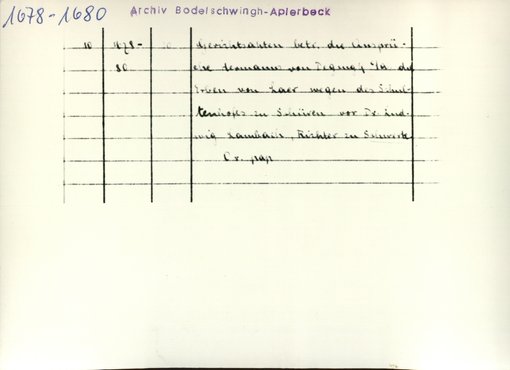 1678-1680
Archiv Bodelschwingh-Aplerbeck
10 1678- Gerichtsakten betr. die Ansprü-
80 che von die
Erben von Laer wegen des Schul-
tenhofes zu Schüren vor Dr. Lud-
wig Lambach, Richter zu Schwerte
Or. pap